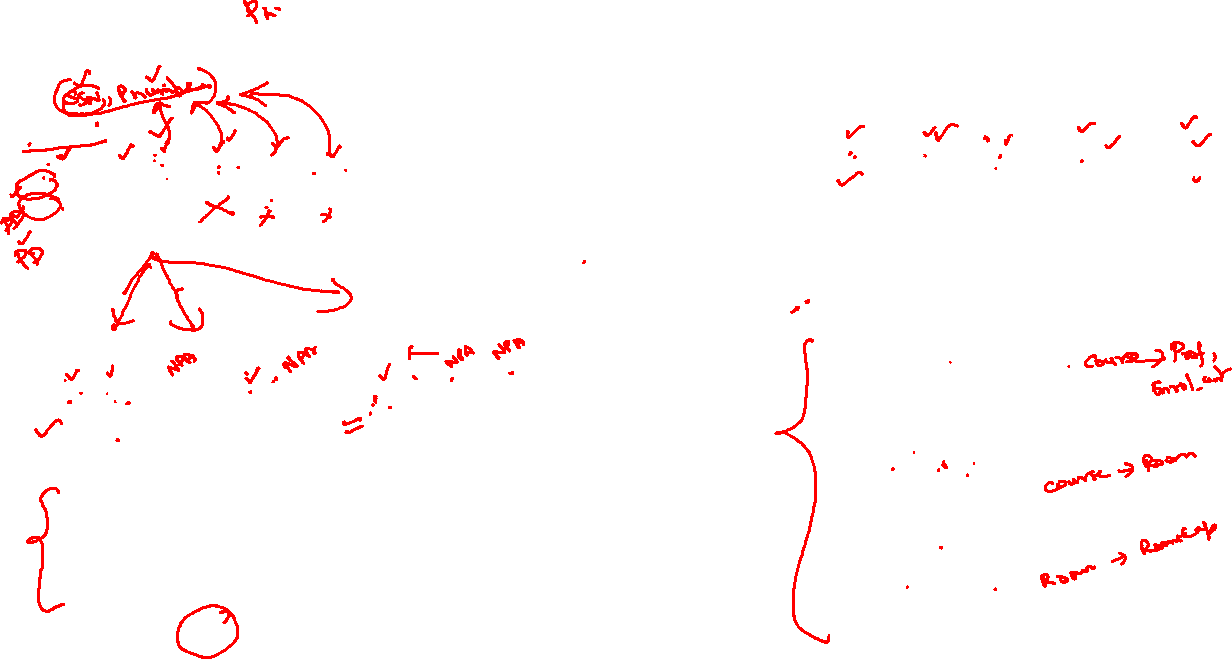 SSN, Pnumber
PD
NPA
NPA
NPA
Course → Prof,
Enrol_cnt
Course → Room
Room → RoomCap